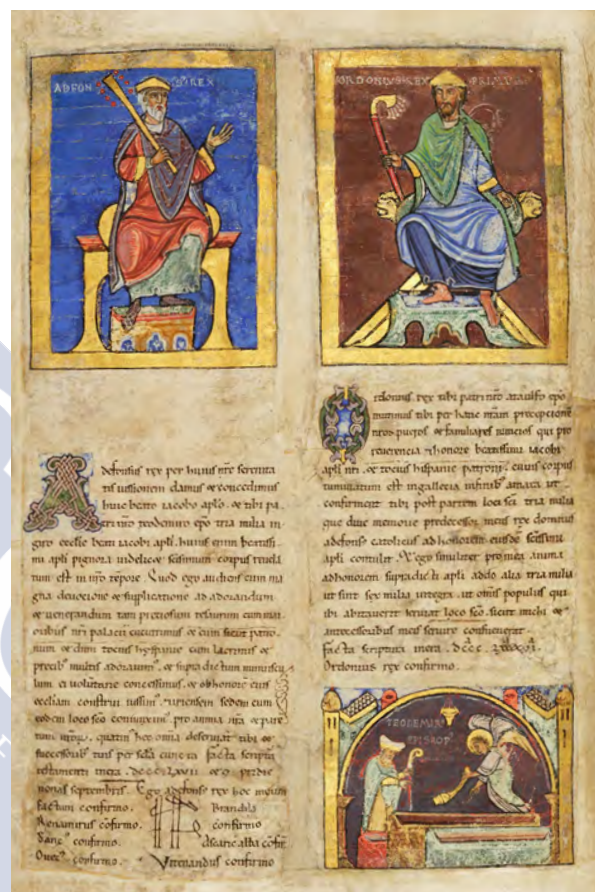 ADEFONSUS REX
ORDONIUS REX
Adefonsus rex per huius nre serenita
tis iussionem damus et concedimus
huic beato iacobo aplo. et tibi pa
tri nro teodemiro epo tria milia in
giro ecclie beati iacobi apli. huius enim beatissi
mi apli pignora uidelicet scissimum corpus reuela
tum est in nro tempore. Quod ego audiens cum ma
gna deuocione et supplicatione ad adorandum
et uenerandum tam preciosum tesaurum cum maio
ribus nri palacii cucurrimus et eum sicut patro
num et dnm tocius hyspanie cum lacrimis et
precib' multis adorauim'. et supra dictum munuscu
lum ei uoluntarie concessimus. et ob honore eius
eccliam construi iussim'. et iriensem sedem cum
eodem loco sco coniunxim' pro anima nra et paren
tum quatin' hec omnia deseruiat tibi et
successorib' tuis per scla cuncta facta scriptu
testamenti inera. pridie
nonas septembris. Ego adefonsus rex hoc meum
factum confirmo. Brandila
Ranamirus cofirmo. confirmo
Sanc' confirmo. Ascaric abba cofir
confirmo. Vitenandus confirmo
Ordonius rex tibi patri nro ataulfo epo
mittimus tibi per hanc nram preceptione
nros pueros et familiares nuncios qui pro
reuerencia et honore beatissimi iacobi
apli nri. et tocius hispanie patroni. cuius corpus
tumulatum est in gallecia infinib' amaea ut
confirment tibi post partem loci sci tria milia
que diue memorie predecesor meus rex domnus
adefonso catolicus ad honorem eiusde scissimi
apli contulit. Et ego similiter pro mea anima
ad honorem supradicti apli addo alia tria milia
ut sint sex milia integra. ut omnis populus qui
ibi abitauerit seruiat loco sco. sicut michi et
antecessoribus meis seruire consueuerat.
facta scriptura inera.
Ordonius rex confirmo.
TEODEMIRUS
EPISCOP'